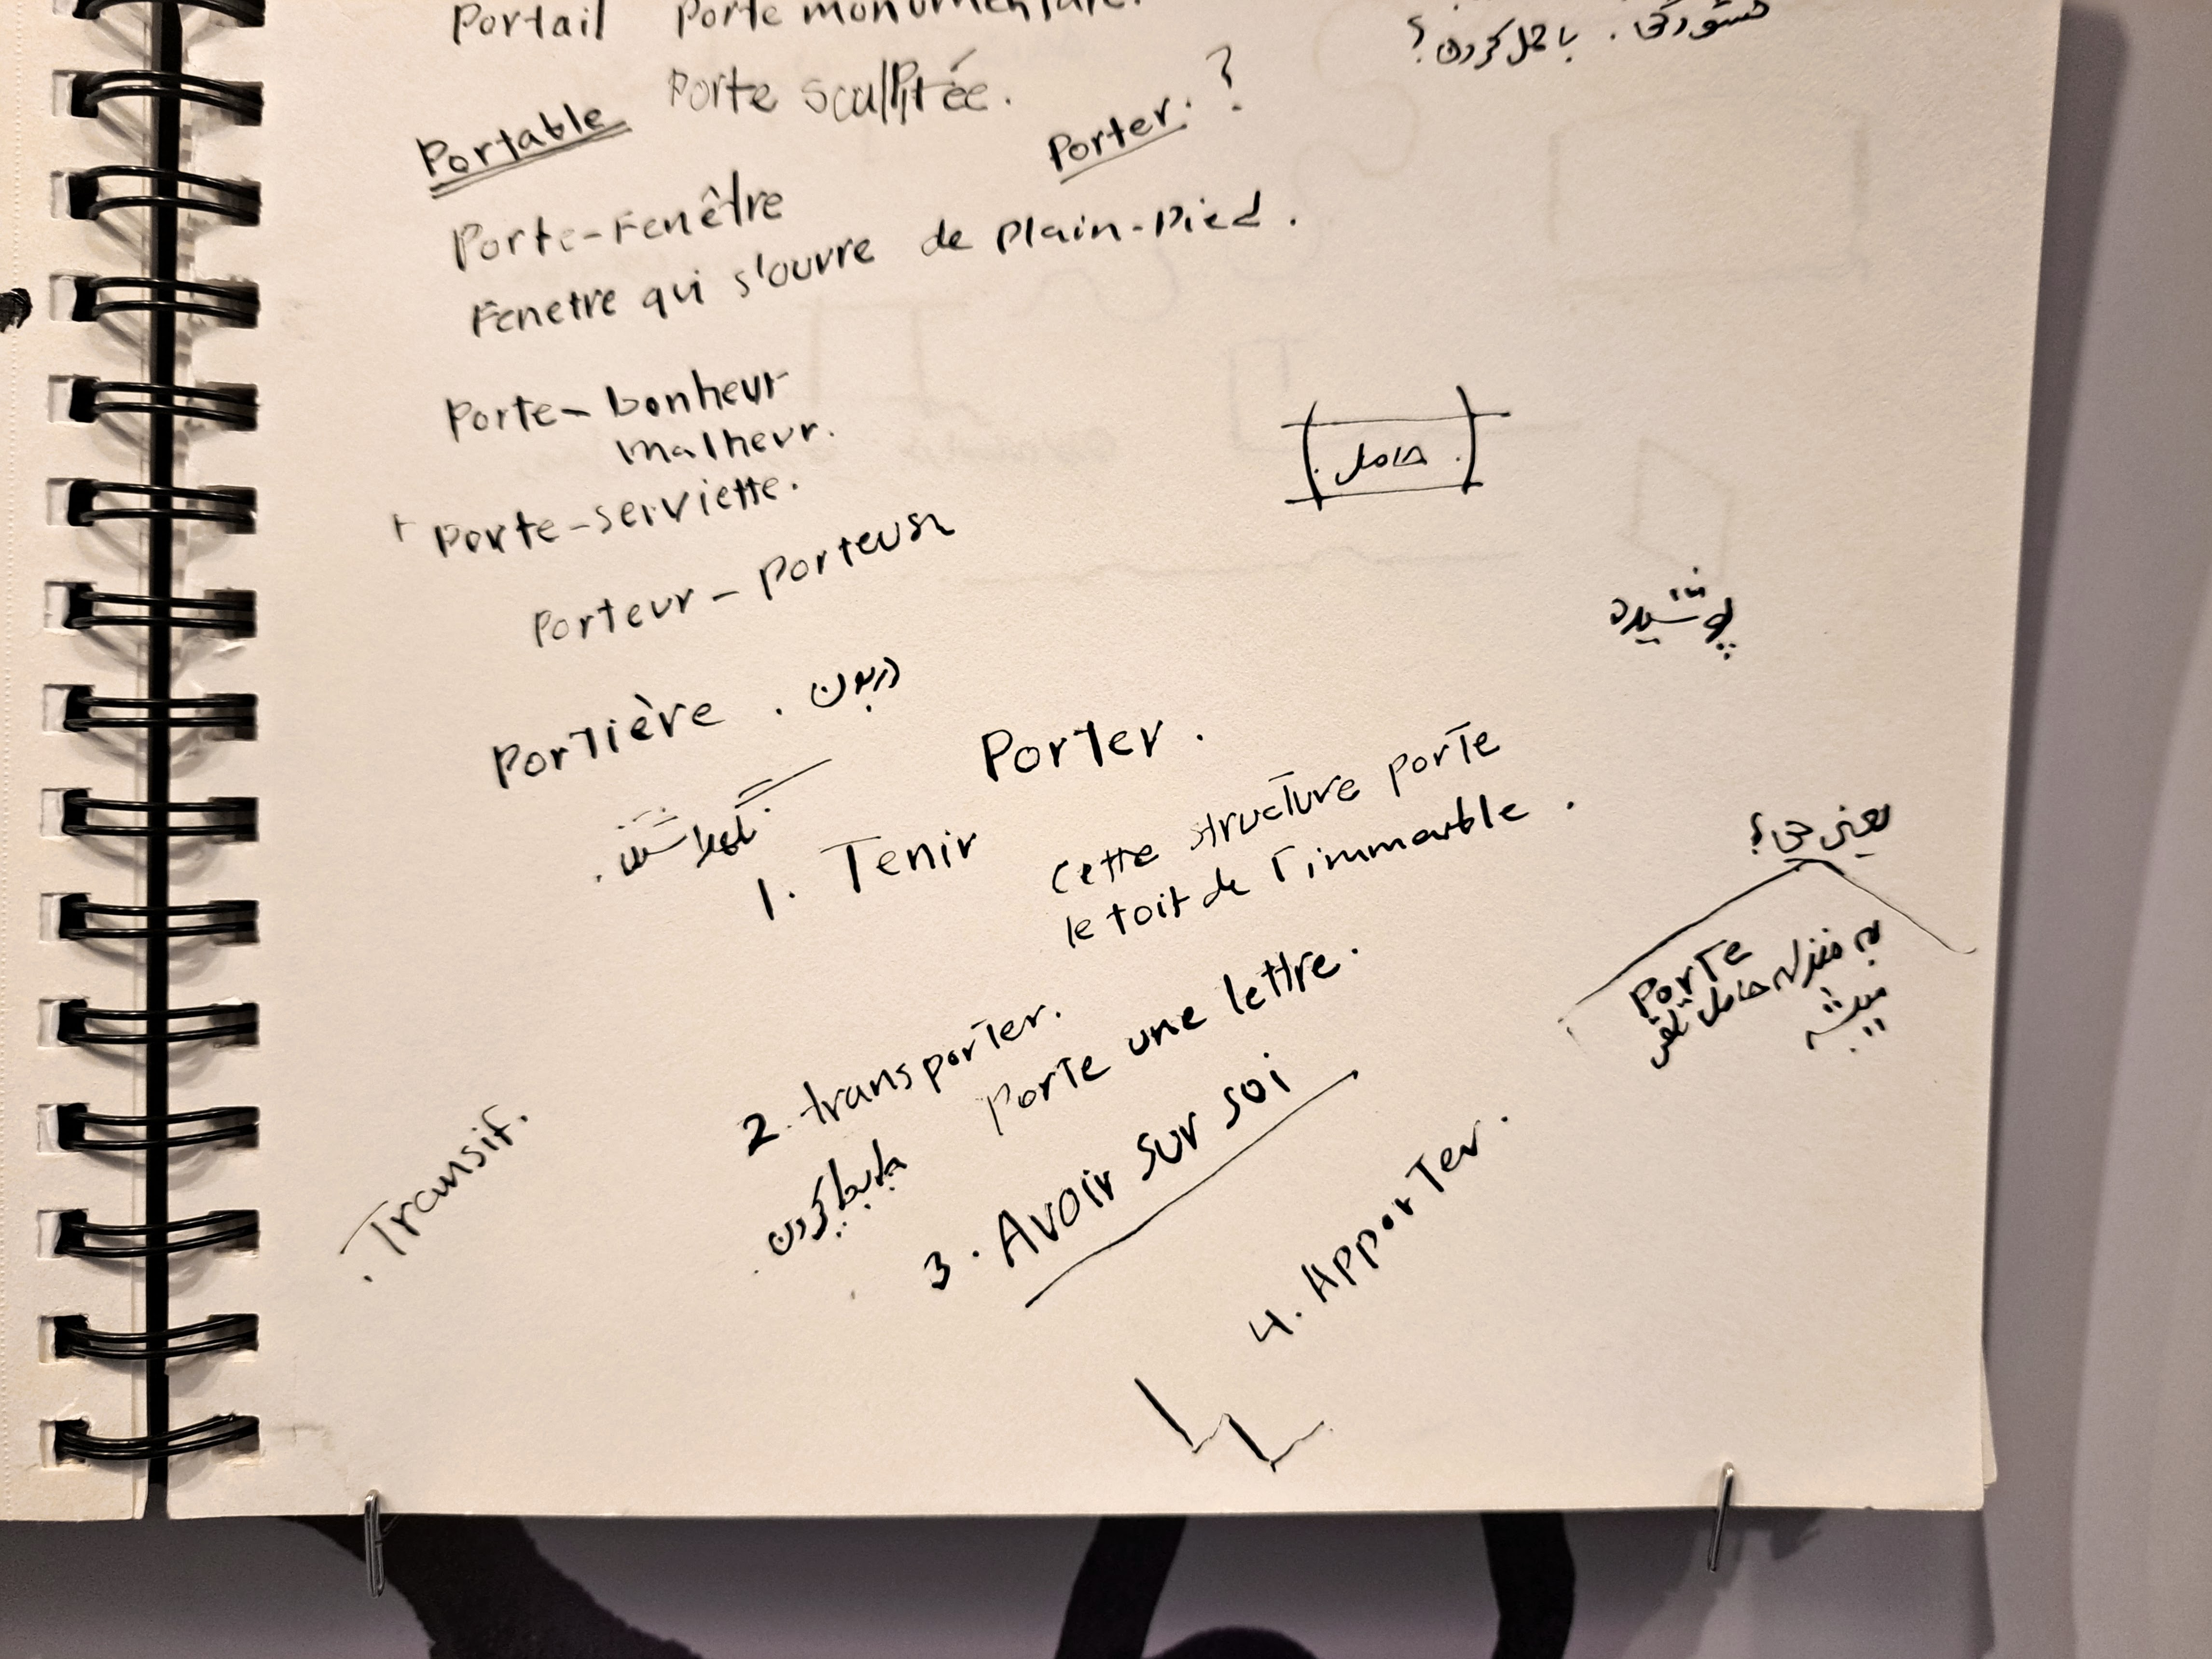 Portail Porte monumentale.
با حمل کردن؟
Porte sculptée.
Portable
Porter. ?
Porte-Fenêtre
Fenetre qui s'ouvre de plain-pied.
Porte-bonheur
malheur.
حامل
Porte-serviette.
Porteur - Porteuse
پوشیده
Portière . دربون
Porter.
نگهداشتن.
1. Tenir
Cette structure porte
le toit de l'immeuble.
یعنی چی؟
Porte
به منزله حامل تلقی
میشه
2. transporter.
Porte une lettre.
جابجا کردن.
3. Avoir sur soi
4. Apporter.
.Transif.